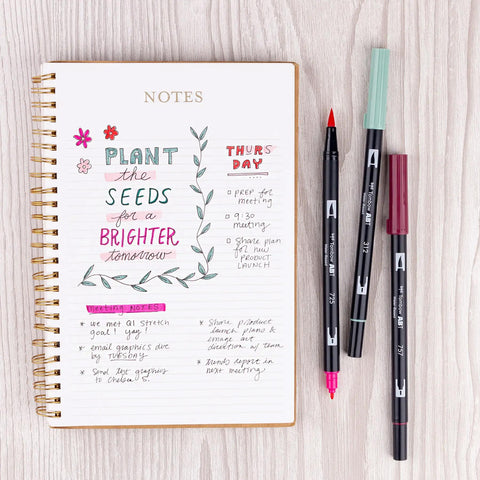 NOTES
PLANT
the
SEEDS
for a
BRIGHTER
tomorrow
THURS
DAY
PREP for
meeting
9:30
meeting
Share plan
for new
PRODUCT
LAUNCH
Meeting NOTES
* we met Q1 stretch
goal! yay!
* email graphics due
by TUESDAY
* Send test graphics
to Chelsea S.
* Share product
launch plans &
image art
direction w/ team
* trends report in
next meeting
Tombow ABT
725
Tombow ABT
312
Tombow ABT
757